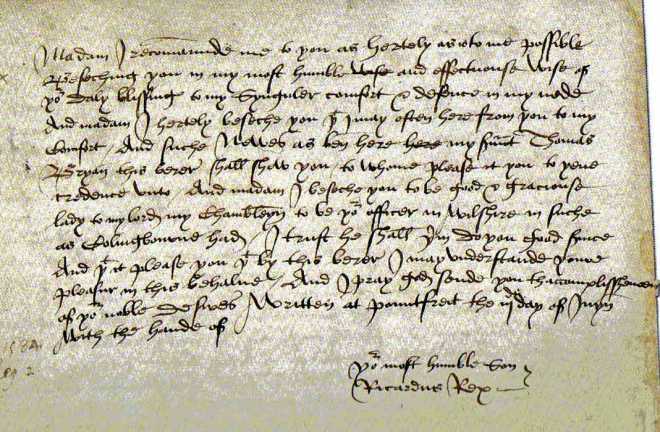 Madam I recommaunde me to you as hertely as is to me possible
Beseching you in my most humble Wise and effectuouse Wise of
yor Daly blissing to my Synguler comfort & defence in my nede
And madam I hertely besoche you yt I may often here from you to my
Comfort And suche Newes as ben here here my servt Thomas
Bryan this berer shall shew you to whome please it you to yeve
credence unto And madam I besoche you to be good & graciouse
lady to my lord my Chamberleyn to be yor officer in Wilshire in suche
as Colingbourne had I trust he shall yrin do you good service
And yt it please you yt by this berer I may understande youre
pleasur in this behalve And I pray god sende you thaccomplisshement
of yor noble desires Written at Pountfreit the iijde day of Juyn
With the hande of
yor most humble Son
Ricardus Rex